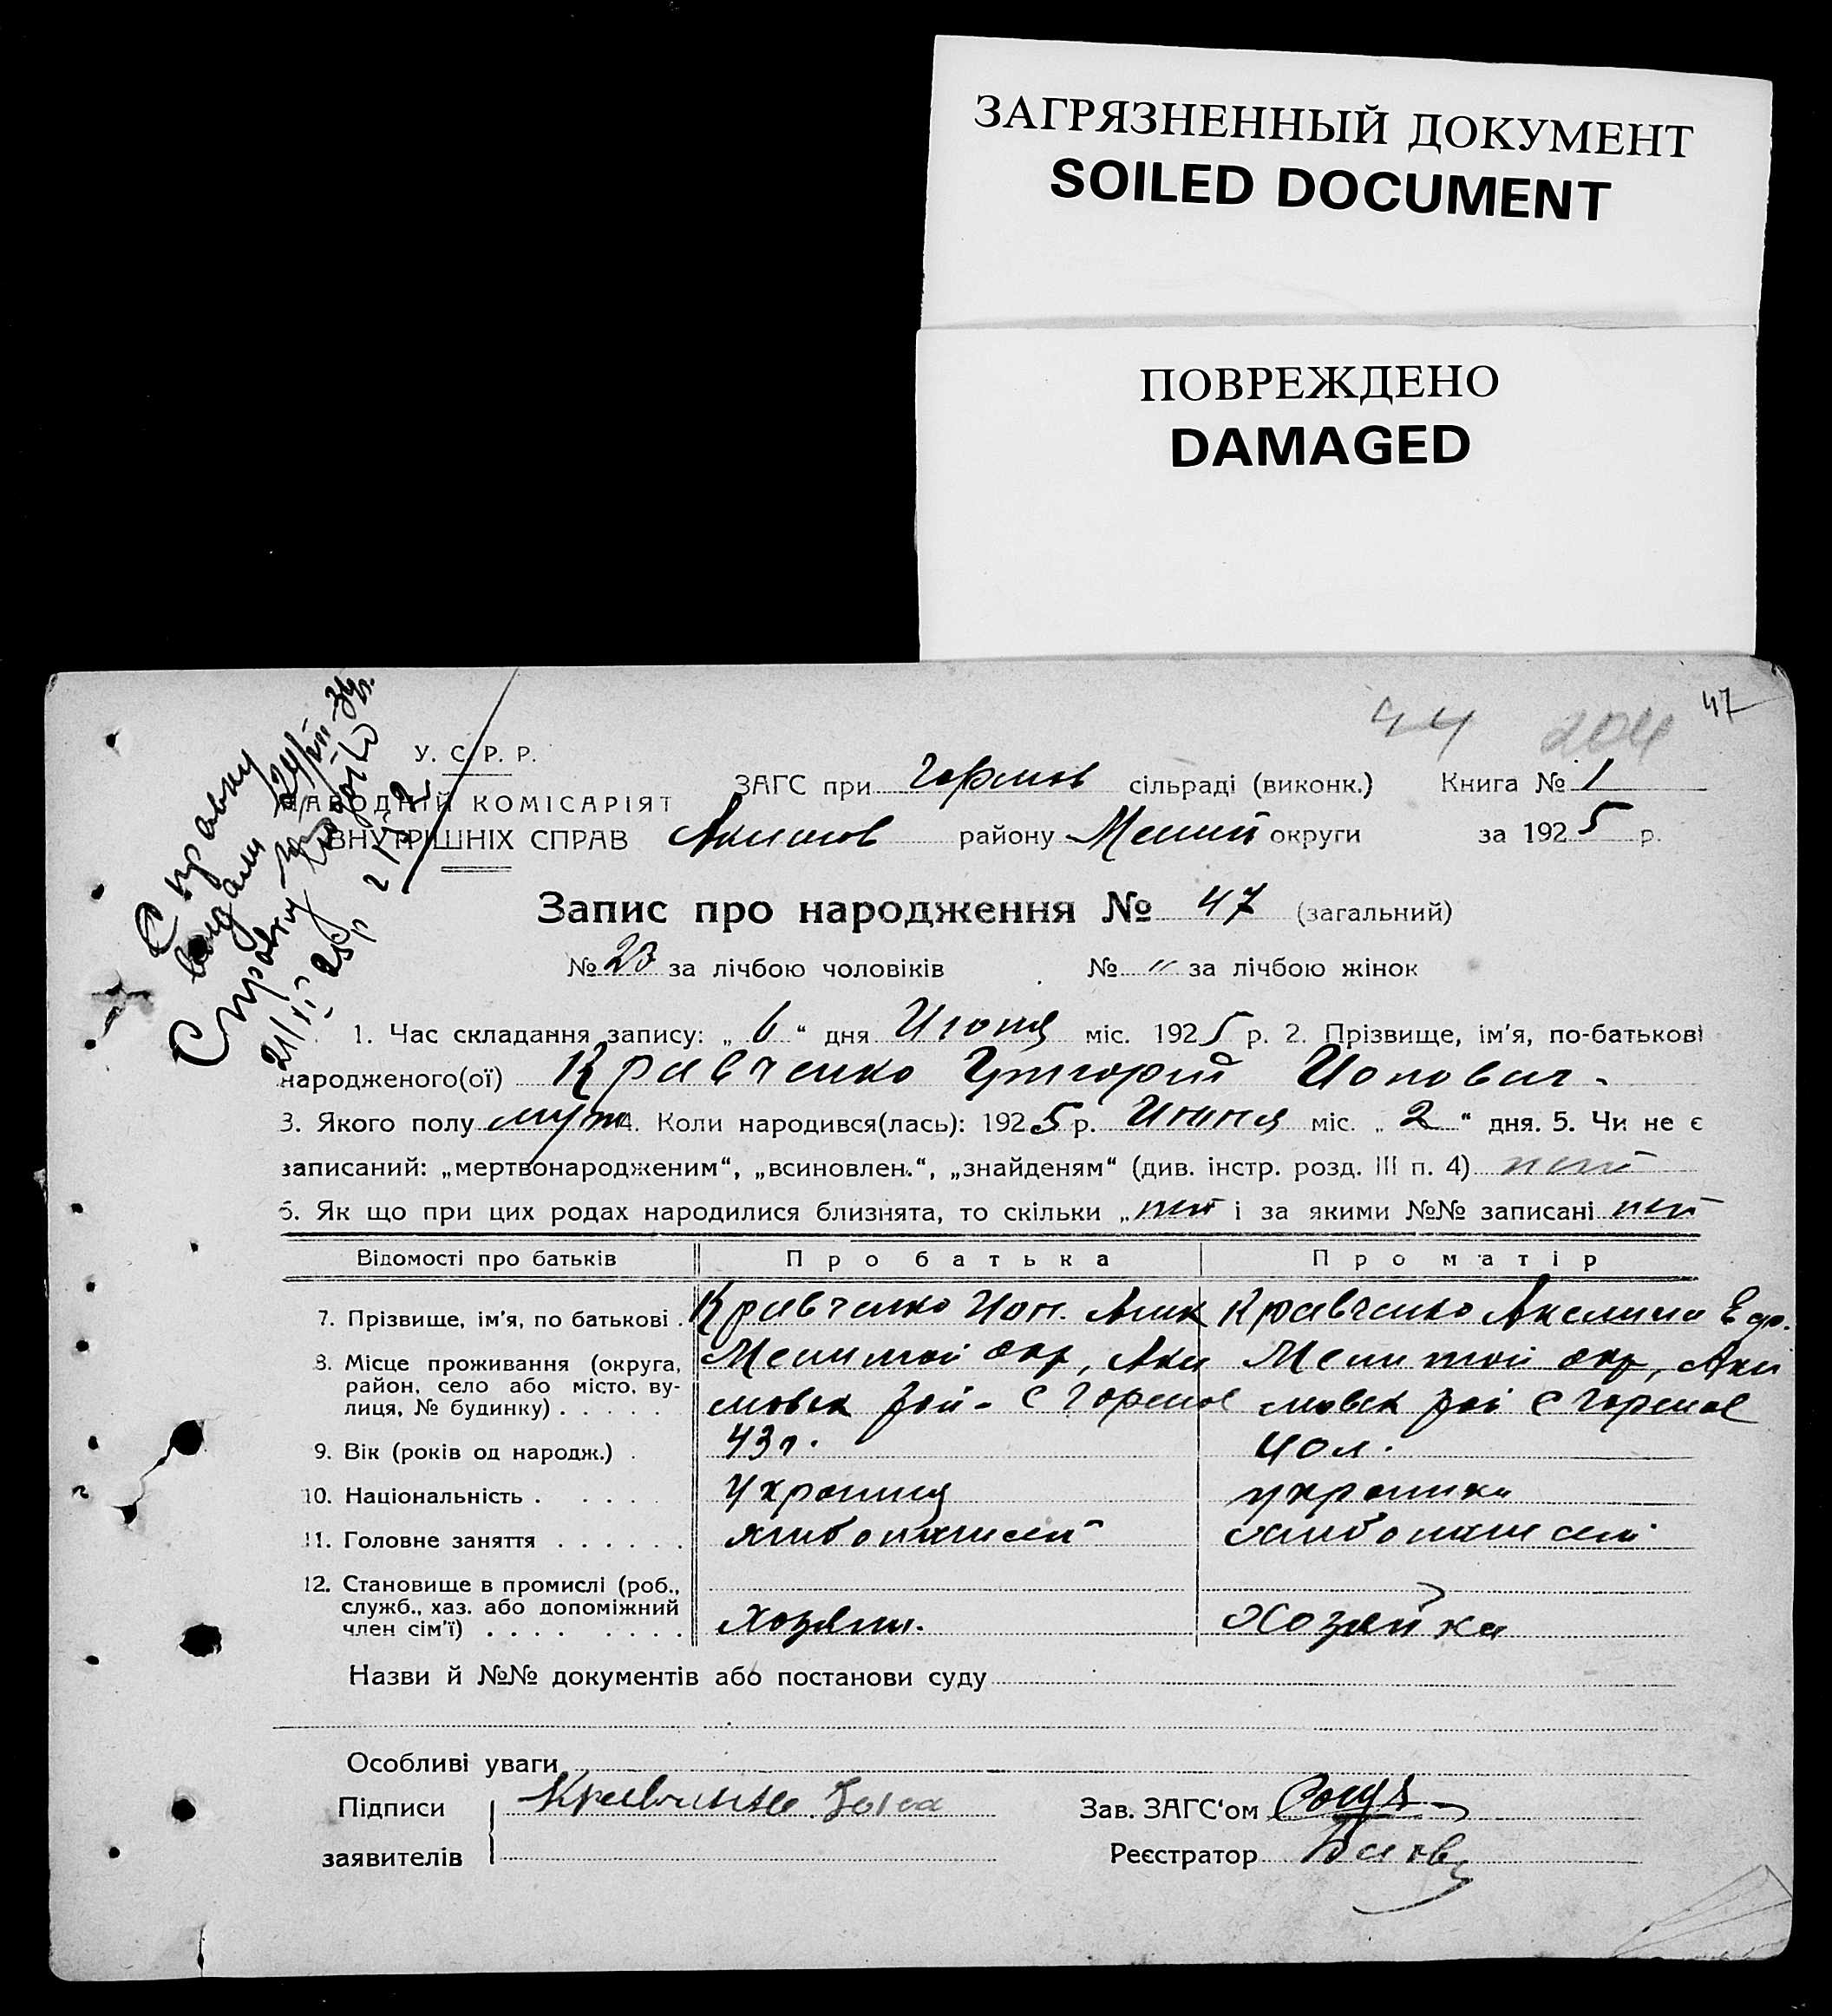 ЗАГРЯЗНЕННЫЙ ДОКУМЕНТ
SOILED DOCUMENT
ПОВРЕЖДЕНО
DAMAGED
44 204 47
Справку
видали
Справку
У. С. Р. Р.
НАРОДНІЙ КОМІСАРІЯТ
ВНУТРІШНІХ СПРАВ
ЗАГС при Гормов сільраді (виконк.) Книга № 1
Акимов району Мелит округи за 1925 р.
Запис про народження № 47 (загальний)
№ 23 за лічбою чоловіків № " за лічбою жінок
1. Час складання запису: „ 6 " дня Июня міс. 1925 р. 2. Прізвище, ім'я, по-батькові
народженого(ої) Кравченко Григорий Ионович.
3. Якого полу муж 4. Коли народився(лась): 1925 р. Июня міс. „ 2 " дня. 5. Чи не є
записаний: „мертвонародженим", „всиновлен.", „знайденям" (див. інстр. розд. III п. 4) нет
6. Як що при цих родах народилися близнята, то скільки „ нет і за якими №№ записані нет
Відомості про батьків Про батька Про матір
7. Прізвище, ім'я, по батькові . Кравченко Ион. Кравченко Акелина Еф.
8. Місце проживання (округа, Мелитой окр, Аки Мелитой окр, Аки
район, село або місто, ву-
лиця, № будинку) . . . . . мовск рай- с Гормов мовск рай с Гормов
9. Вік (років од народж.) . 43 г. 40 л.
10. Національність . . . . . Украинц украинка
11. Головне заняття . . . . . . хлибопашест хлибопашест
12. Становище в промислі (роб.,
служб., хаз. або допоміжний
член сім'ї) . . . . . . . . хозяин. Хозяйка
Назви й №№ документів або постанови суду
Особливі уваги
Підписи Кравченко Зав. ЗАГС'ом
заявителів Реєстратор